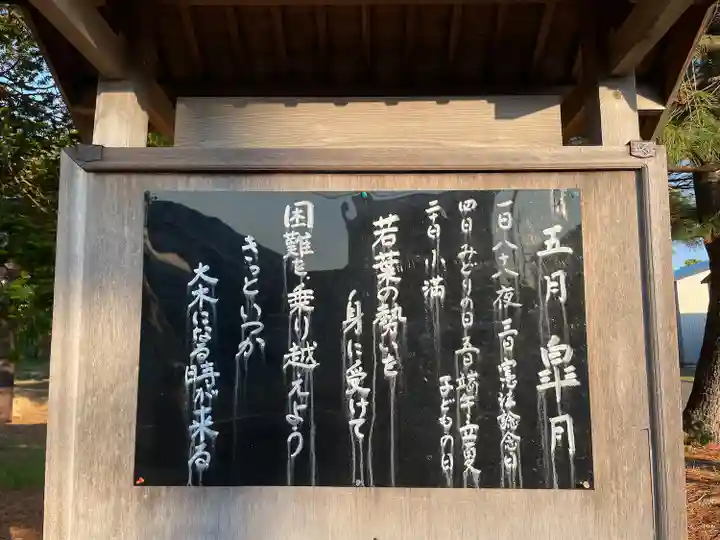 五月 皐月
一日八十八夜 三日憲法記念日
四日みどりの日 五日端午 立夏
子どもの日
二十日小満
若葉の勢いを
身に受けて
困難を乗り越えよう
きっといつか
大木になる時が来る